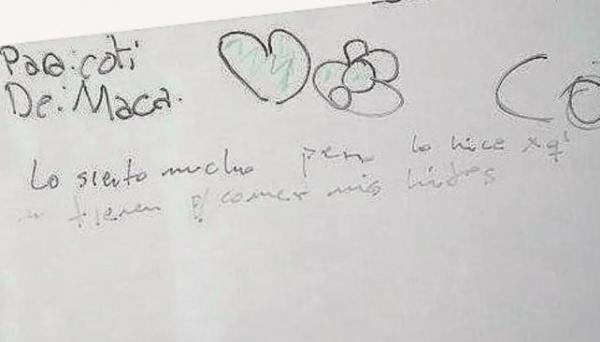 Paa: coti
De: Maca.
Co
Lo siento mucho pero lo hice xq'
no tienen p/ comer mis hijos